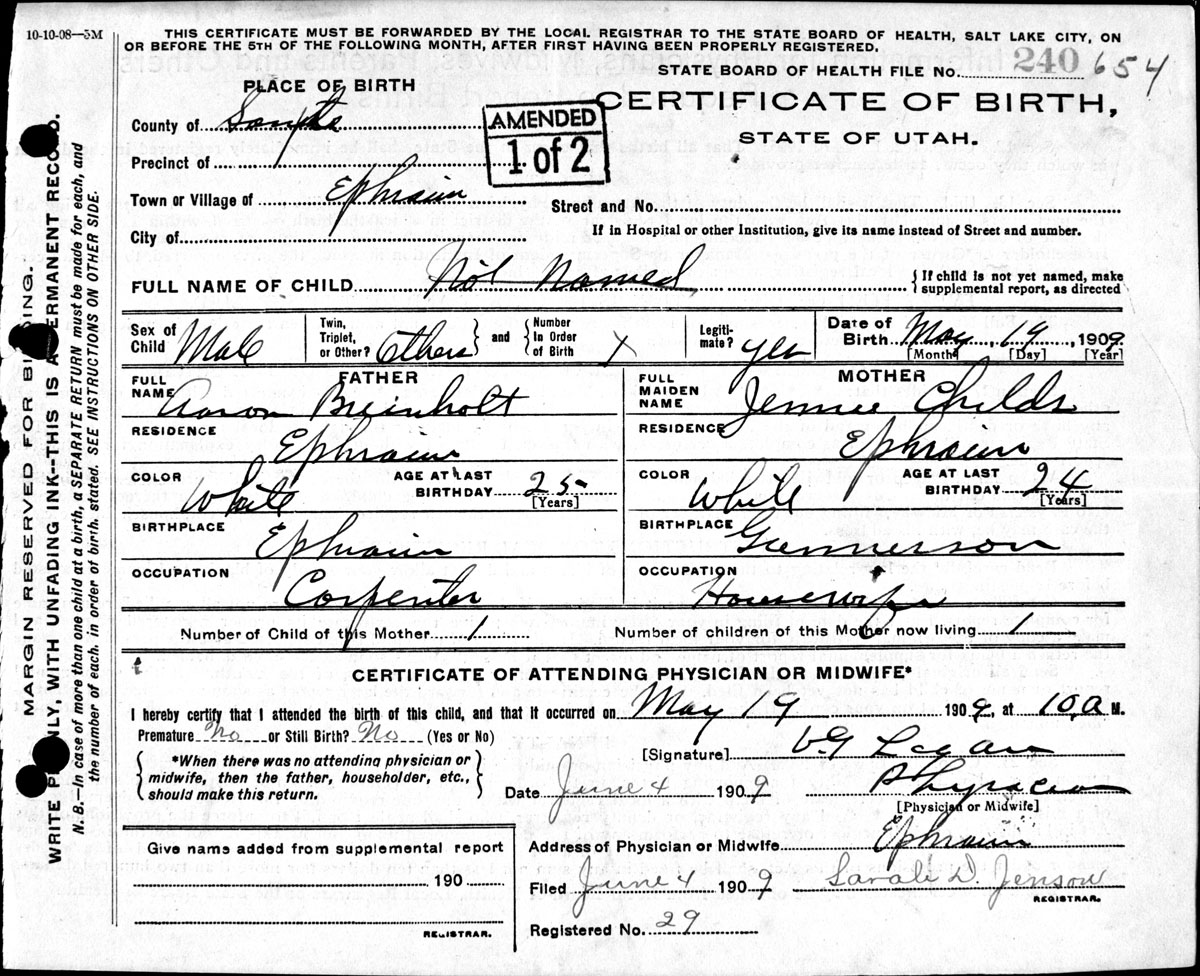 10-10-08—5M
THIS CERTIFICATE MUST BE FORWARDED BY THE LOCAL REGISTRAR TO THE STATE BOARD OF HEALTH, SALT LAKE CITY, ON
OR BEFORE THE 5TH OF THE FOLLOWING MONTH, AFTER FIRST HAVING BEEN PROPERLY REGISTERED.
STATE BOARD OF HEALTH FILE No. 240 654
PLACE OF BIRTH
CERTIFICATE OF BIRTH,
STATE OF UTAH.
AMENDED
1 of 2
County of
Precinct of
Town or Village of Ephraim
Street and No.
City of
If in Hospital or other Institution, give its name instead of Street and number.
FULL NAME OF CHILD Not Named {If child is not yet named, make supplemental report, as directed
Sex of Child Male
Twin, Triplet, or Other? Others} and {Number In Order of Birth
Legiti-mate? yes
Date of Birth May 19 1909
[Month] [Day] [Year]
FATHER
FULL NAME Aaron Breinholt
RESIDENCE Ephraim
COLOR White
AGE AT LAST BIRTHDAY 25
[Years]
BIRTHPLACE Ephraim
OCCUPATION Carpenter
MOTHER
FULL MAIDEN NAME Jennie Childs
RESIDENCE Ephraim
COLOR White
AGE AT LAST BIRTHDAY 24
[Years]
BIRTHPLACE Gunnerson
OCCUPATION Housewife
Number of Child of this Mother 1 Number of children of this Mother now living 1
CERTIFICATE OF ATTENDING PHYSICIAN OR MIDWIFE*
I hereby certify that I attended the birth of this child, and that it occurred on May 19 1909, at 10,a M.
Premature No or Still Birth? No (Yes or No)
{*When there was no attending physician or
midwife, then the father, householder, etc.,
should make this return.}
[Signature]
Date June 4 1909
Physician
[Physician or Midwife]
Address of Physician or Midwife Ephraim
Filed June 4 1909 Sarah D. Jenson
REGISTRAR.
Registered No. 29
Give name added from supplemental report
190
REGISTRAR.
MARGIN RESERVED FOR BINDING.
WRITE PLAINLY, WITH UNFADING INK--THIS IS A PERMANENT RECORD.
N. B.—In case of more than one child at a birth, a SEPARATE RETURN must be made for each, and
the number of each, in order of birth, stated. SEE INSTRUCTIONS ON OTHER SIDE.